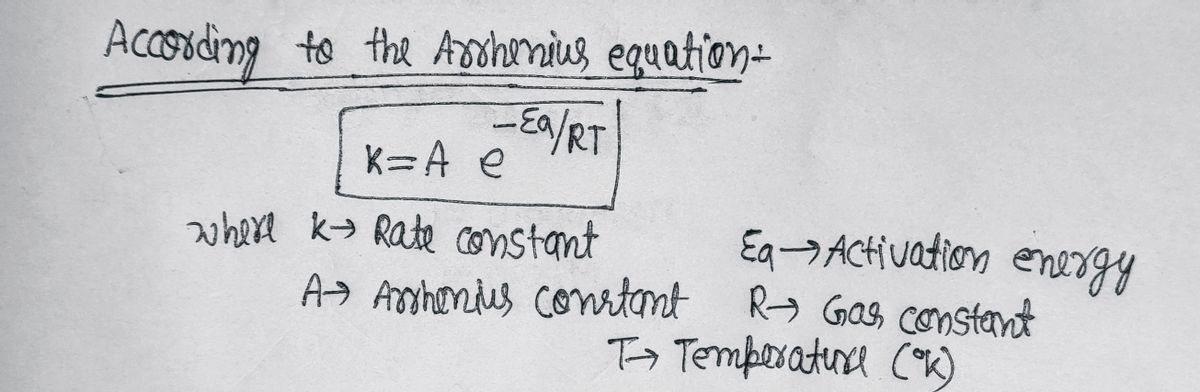 According to the Arrhenius equation:-
K = A e^-Ea/RT
where K→ Rate constant Ea→Activation energy
A→ Arrhenius constant R→ Gas constant
T→ Temperature (°K)